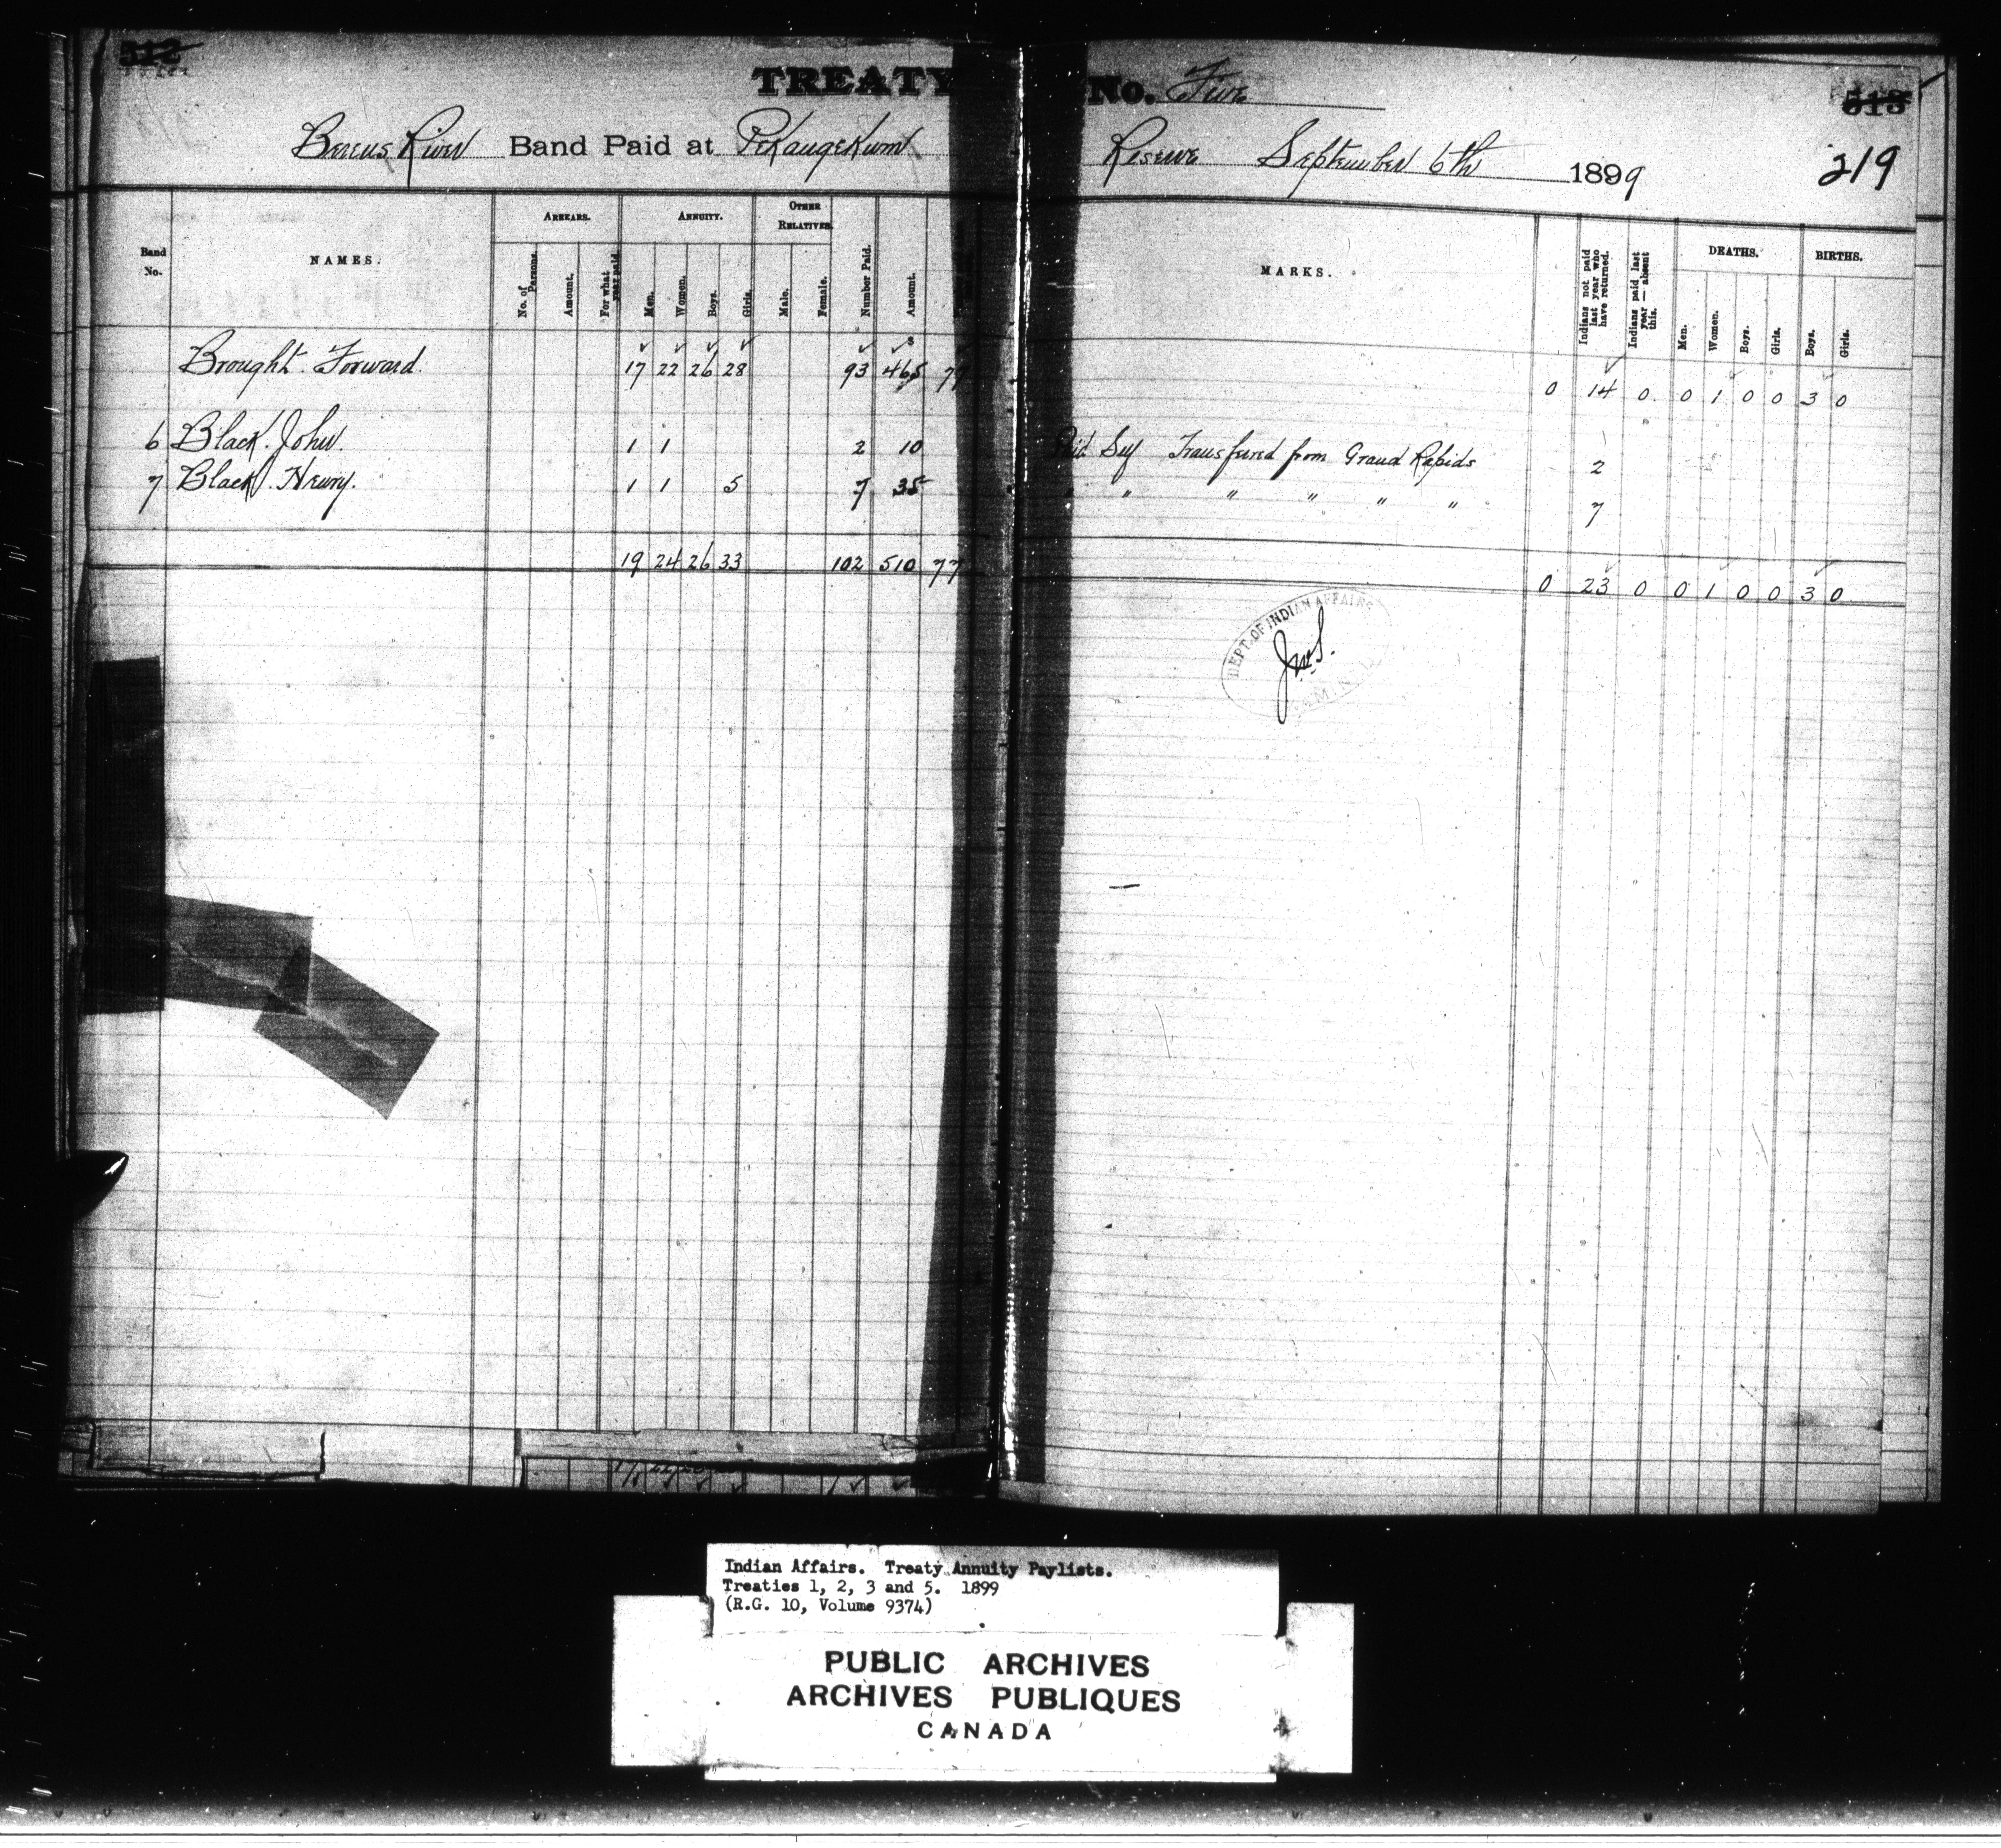 512
TREATY No. Five
513
Berens River Band Paid at Pekangekum Reserve September 6th 1899
219
Band No.
NAMES.
ARREARS.
No. of Persons.
Amount.
For what year paid.
ANNUITY.
Men.
Women.
Boys.
Girls.
OTHER RELATIVES.
Male.
Female.
Number Paid.
Amount.
MARKS.
Indians not paid last year who have returned.
Indians paid last year — absent this.
DEATHS.
Men.
Women.
Boys.
Girls.
BIRTHS.
Boys.
Girls.
Brought Forward. 17 22 26 28 93 465 77 0 14 0 0 1 0 0 3 0
6 Black. John. 1 1 2 10 Paid Self Transferred from Grand Rapids 2
7 Black. Henry. 1 1 5 7 35 " " " " " " 7
19 24 26 33 102 510 77 0 23 0 0 1 0 0 3 0
DEPT. OF INDIAN AFFAIRS
Indian Affairs. Treaty Annuity Paylists.
Treaties 1, 2, 3 and 5. 1899
(R.G. 10, Volume 9374)
PUBLIC ARCHIVES
ARCHIVES PUBLIQUES
CANADA